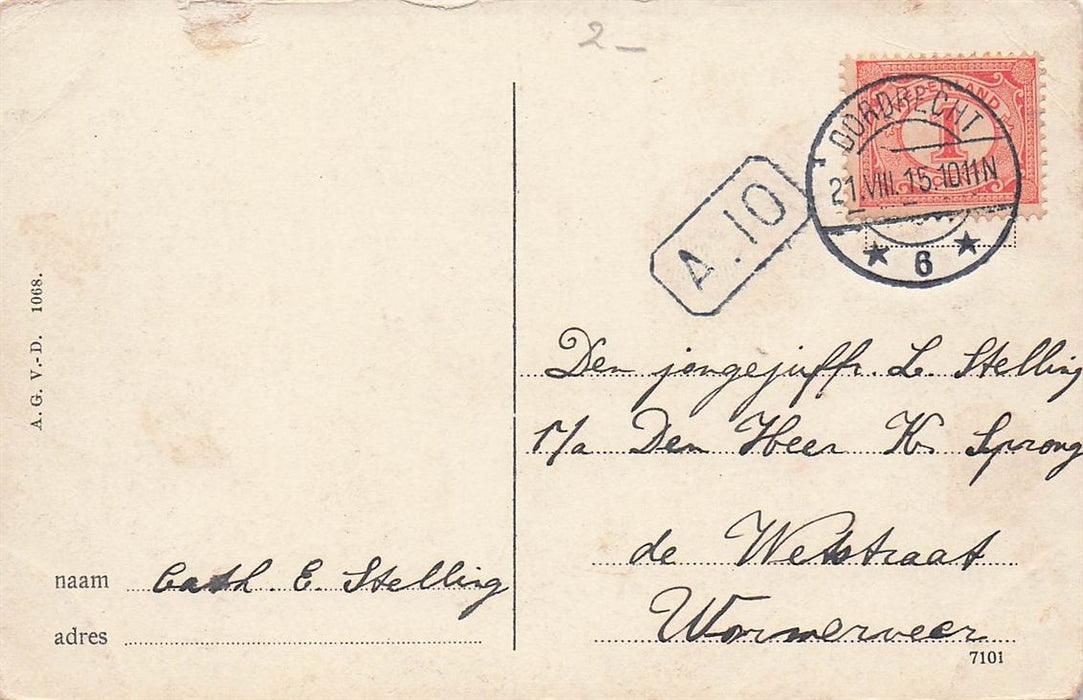 2 –
NEDERLAND
1
DORDRECHT
21.VIII.15.10 11N
★ 6 ★
A.10
A. G. V.-D. 1068.
Den jongejuffr. L. Stelling
p/a Den Heer K. Sprong
de Wetstraat
Wormerveer
naam Cath. E. Stelling
adres
7101